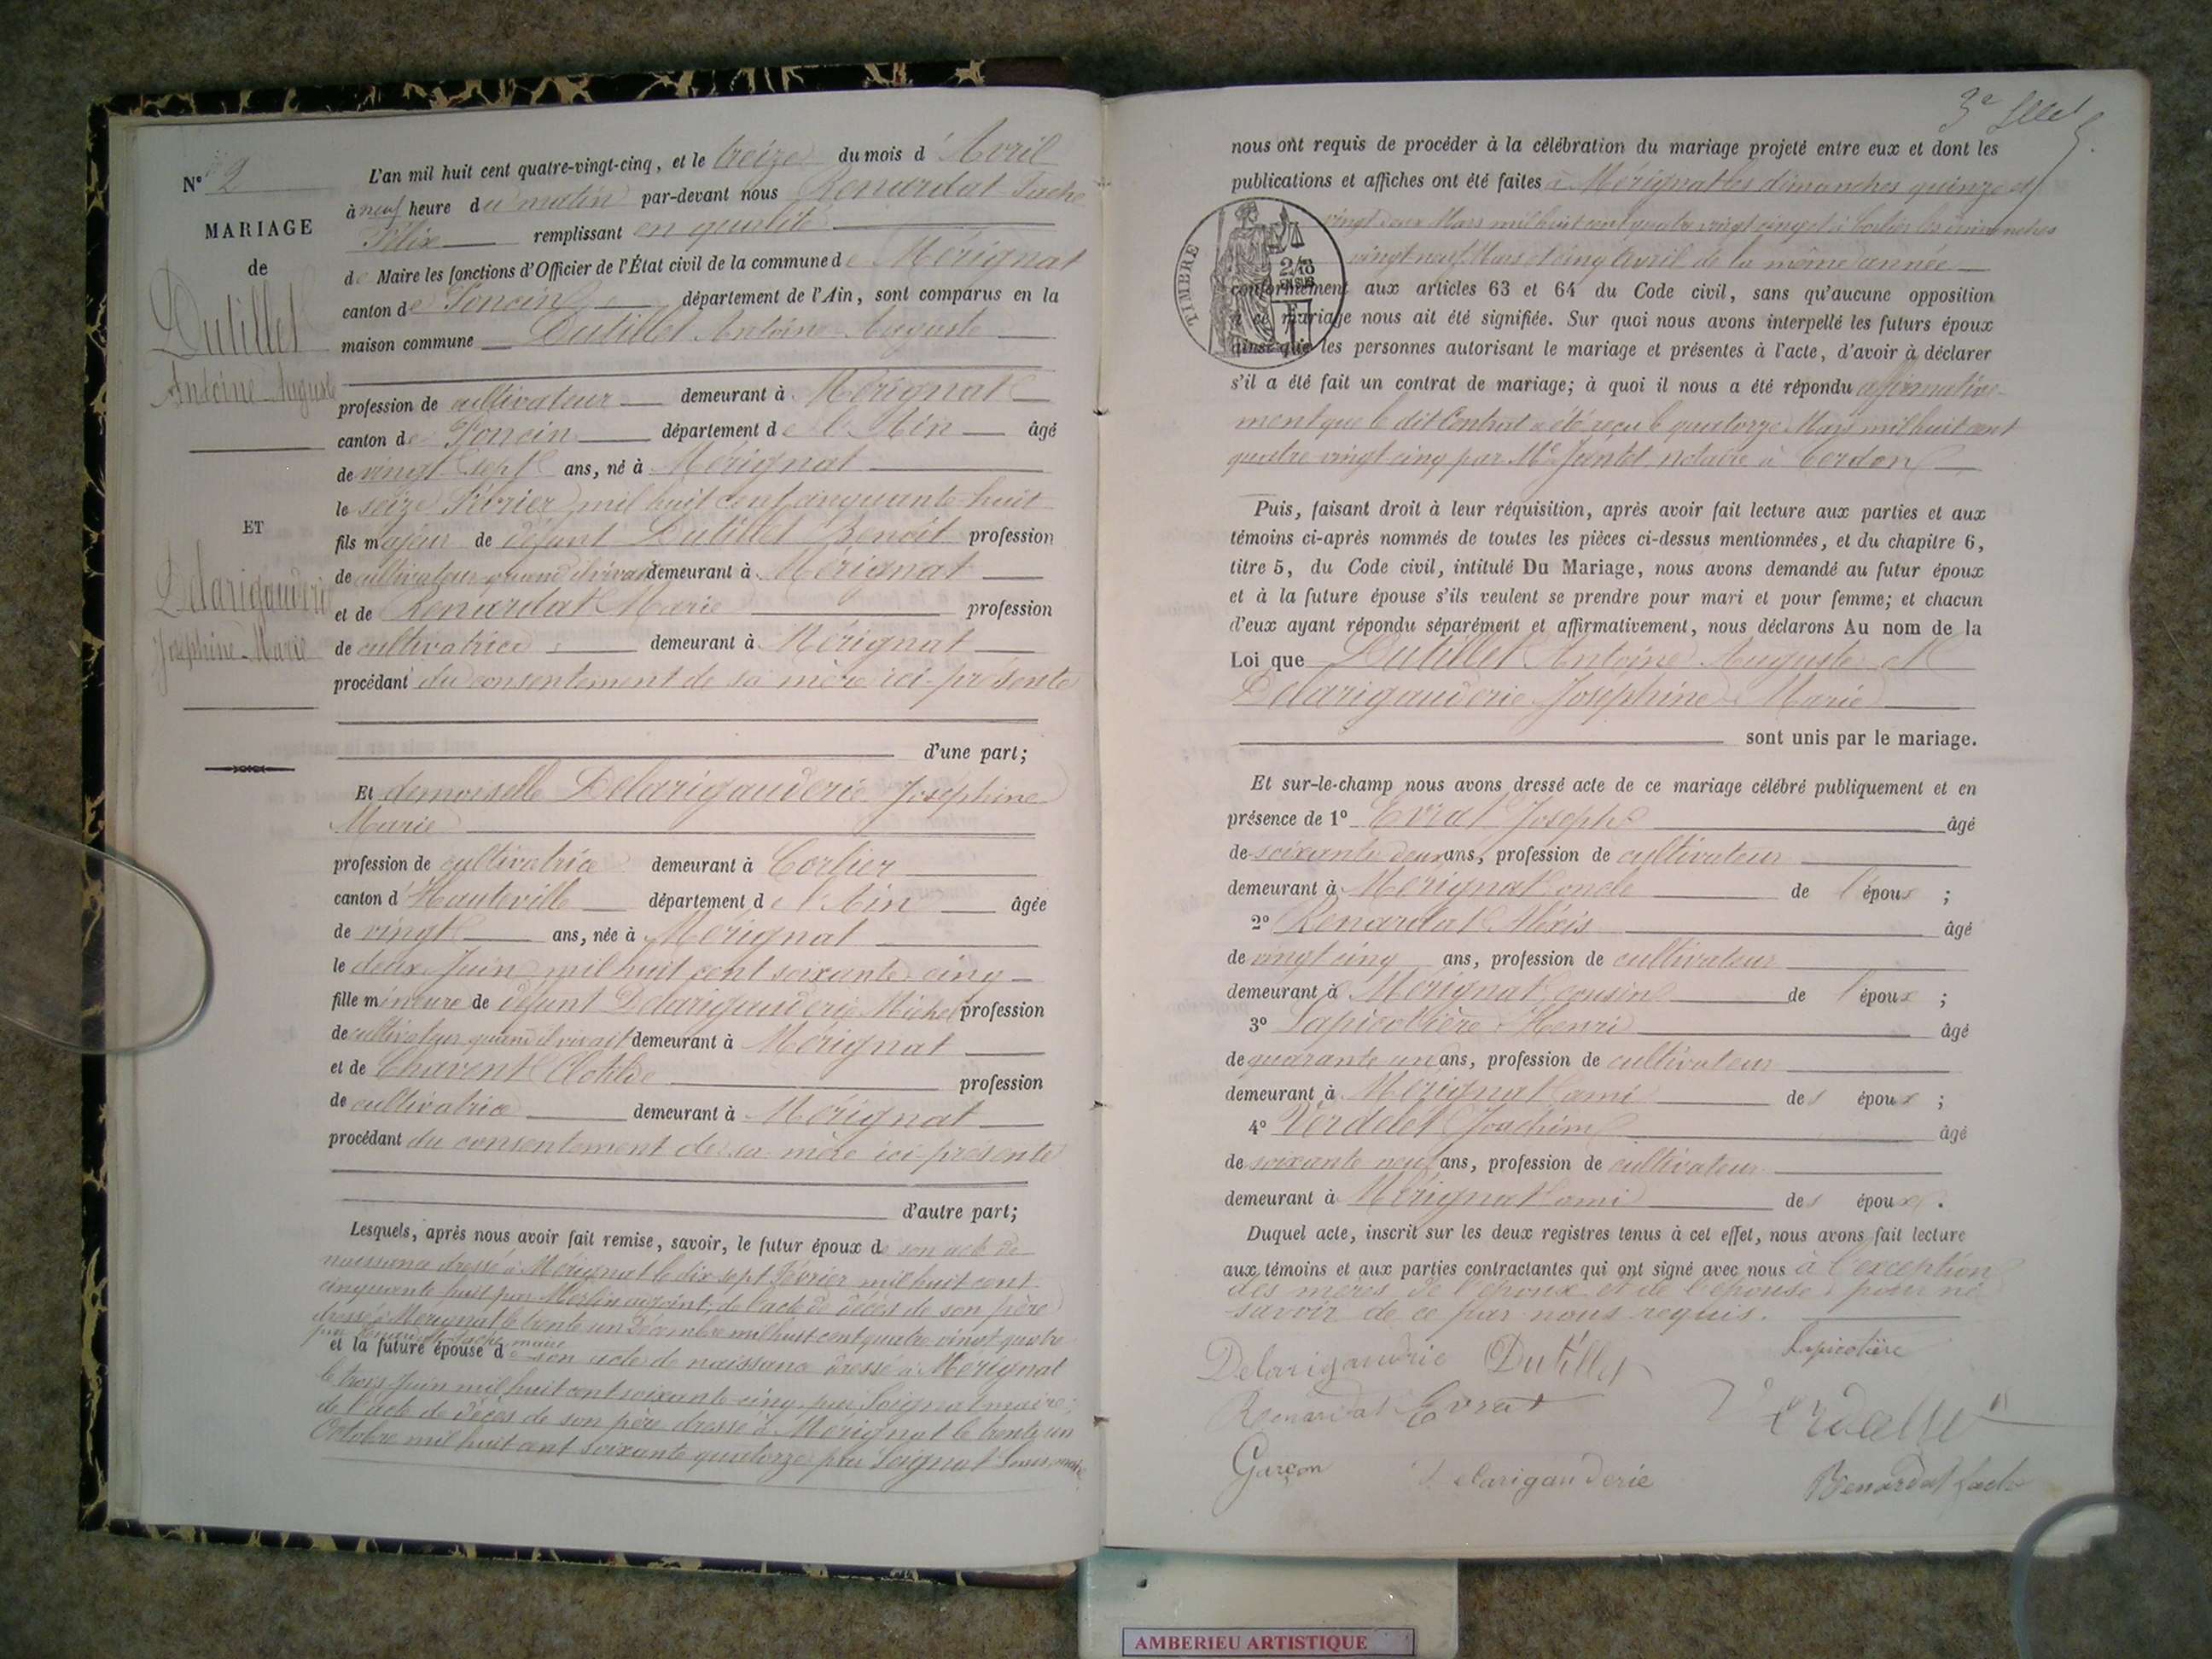 N° 2
MARIAGE
de
Dutillet
Antoine Auguste
ET
Delarigauderie
Joséphine Marie
L'an mil huit cent quatre-vingt-cinq, et le treize du mois d'Avril
à neuf heure du matin par-devant nous Renardat Fache
Félix remplissant en qualité
de Maire les fonctions d'Officier de l'État civil de la commune de Mérignat
canton de Poncin département de l'Ain, sont comparus en la
maison commune Dutillet Antoine Auguste
profession de cultivateur demeurant à Mérignat
canton de Poncin département de l'Ain âgé
de vingt sept ans, né à Mérignat
le seize Février mil huit cent cinquante huit
fils majeur de défunt Dutillet Benoit profession
de cultivateur quand il vivait demeurant à Mérignat
et de Renardat Marie profession
de cultivatrice demeurant à Mérignat
procédant du consentement de sa mère ici présente
d'une part;
Et demoiselle Delarigauderie Joséphine
Marie
profession de cultivatrice demeurant à Corlier
canton d'Hauteville département de l'Ain âgée
de vingt ans, née à Mérignat
le deux Juin mil huit cent soixante cinq
fille mineure de défunt Delarigauderie Michel profession
de cultivateur quand il vivait demeurant à Mérignat
et de Chavent Clotilde profession
de cultivatrice demeurant à Mérignat
procédant du consentement de sa mère ici présente
d'autre part;
Lesquels, après nous avoir fait remise, savoir, le futur époux de son acte de
naissance dressé à Mérignat le dix sept Février mil huit cent
cinquante huit par Merlin adjoint, de l'acte de décès de son père
dressé à Mérignat le trente un Décembre mil huit cent quatre vingt quatre
par Renardat Fache maire
et la future épouse de son acte de naissance dressé à Mérignat
le trois Juin mil huit cent soixante cinq par Soignat maire;
de l'acte de décès de son père dressé à Mérignat le trente un
Octobre mil huit cent soixante quatorze par Soignat Louis maire
3e
nous ont requis de procéder à la célébration du mariage projeté entre eux et dont les
publications et affiches ont été faites à Mérignat les dimanches quinze et
vingt deux Mars mil huit cent quatre vingt cinq et à Corlier les dimanches
vingt neuf Mars et cinq Avril de la même année
TIMBRE
2/10
conformément aux articles 63 et 64 du Code civil, sans qu'aucune opposition
à ce mariage nous ait été signifiée. Sur quoi nous avons interpellé les futurs époux
ainsi que les personnes autorisant le mariage et présentes à l'acte, d'avoir à déclarer
s'il a été fait un contrat de mariage; à quoi il nous a été répondu affirmative-
ment que le dit Contrat a été reçu le quatorze Mars mil huit cent
quatre vingt cinq par Me Jantet notaire à Cerdon
Puis, faisant droit à leur réquisition, après avoir fait lecture aux parties et aux
témoins ci-après nommés de toutes les pièces ci-dessus mentionnées, et du chapitre 6,
titre 5, du Code civil, intitulé Du Mariage, nous avons demandé au futur époux
et à la future épouse s'ils veulent se prendre pour mari et pour femme; et chacun
d'eux ayant répondu séparément et affirmativement, nous déclarons Au nom de la
Loi que Dutillet Antoine Auguste et
Delarigauderie Joséphine Marie
sont unis par le mariage.
Et sur-le-champ nous avons dressé acte de ce mariage célébré publiquement et en
présence de 1° Evrat Joseph âgé
de soixante deux ans, profession de cultivateur
demeurant à Mérignat oncle de l'époux ;
2° Renardat Alexis âgé
de vingt cinq ans, profession de cultivateur
demeurant à Mérignat cousin de l'époux ;
3° Lapicotière Henri âgé
de quarante un ans, profession de cultivateur
demeurant à Mérignat ami des époux ;
4° Verdelet Joachim âgé
de soixante neuf ans, profession de cultivateur
demeurant à Mérignat ami des époux .
Duquel acte, inscrit sur les deux registres tenus à cet effet, nous avons fait lecture
aux témoins et aux parties contractantes qui ont signé avec nous à l'exception
des mères de l'époux et de l'épouse pour ne
savoir de ce par nous requis.
Delarigaudrie Dutillet Lapicotière
Renardat Evrat Verdellet
Garçon Delarigauderie Renardat fache
AMBERIEU ARTISTIQUE